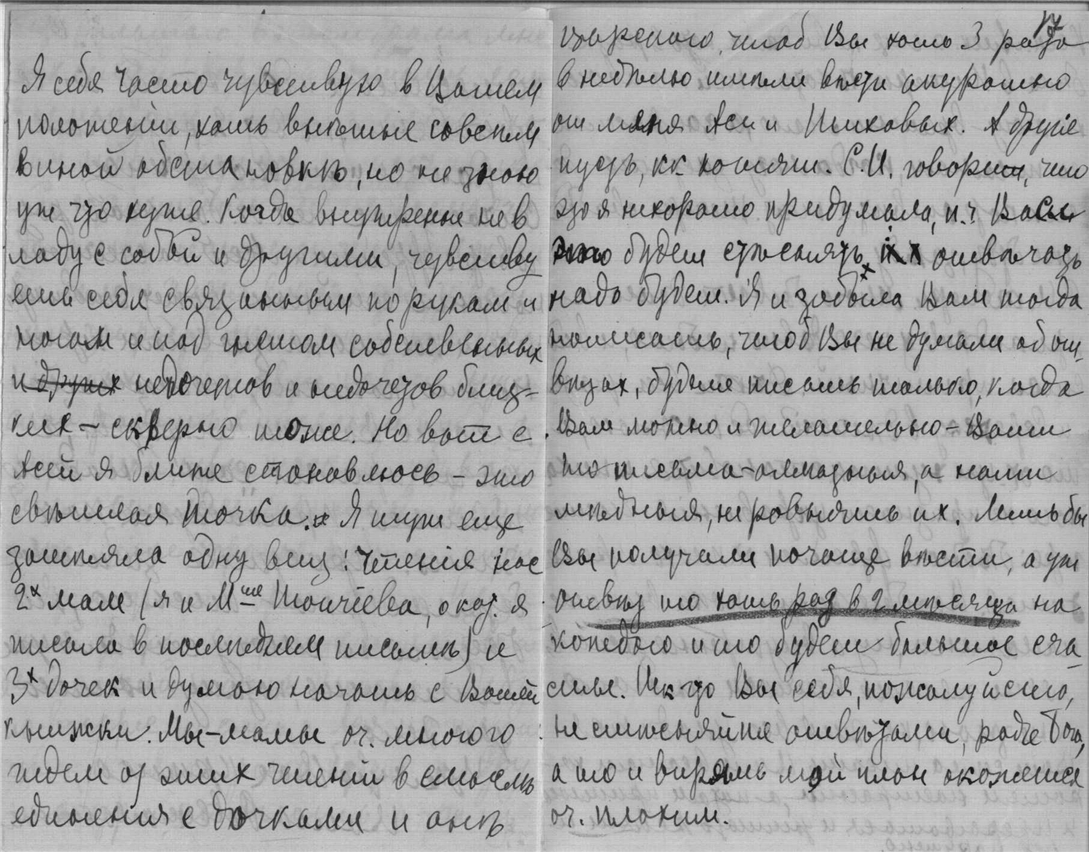 Я себя часто чувствую в Вашем
положеніи, хоть внѣшне совсѣм
в иной обстановкѣ, но не знаю
уж что хуже. Когда внутренне не в
ладу с собой и другими, чувству
ешь себя связанным по рукам и
ногам и под гнетом собственных
и других недочетов и недочетов близ-
ких – скверно тоже. Но вот с
Асей я ближе становлюсь – это
свѣтлая точка. Я тут еще
затѣяла одну вещь: чтенія нас
2х мам (я и Mme Толчіева, о кот. я
писала в послѣднем письмѣ) и
3х дочек и думаю начать с Вашей
книжки. Мы-мамы оч. много
ждем от этих чтеній в смыслѣ
единенія с дочками и онѣ
17
чтоб Вы хоть 3 раза
в недѣлю имѣли вѣсти акуратно
от меня Аси и Шиховых. А другіе
пусть, кк хотят. С.И. говорит, что
это я нехорошо придумала, п.ч. Вас
это будет стѣснять, отвѣчать
надо будет. Я и забыла Вам тогда
написать, чтоб Вы не думали об от
вѣтах, будете писать только, когда
Вам можно и желательно – Ваши
то письма – алмазныя, а наши
мѣдныя, не ровняйте их. Лишь бы
Вы получали почаще вѣсти, а уж
отвѣт то хоть раз в 2 мѣсяца на
копѣйку и то будет большое сча
стье. Так что Вы себя, пожалуйста,
не стѣсняйте отвѣтами, ради Бога,
а то и впрямь мой план окажется
оч. плохим.